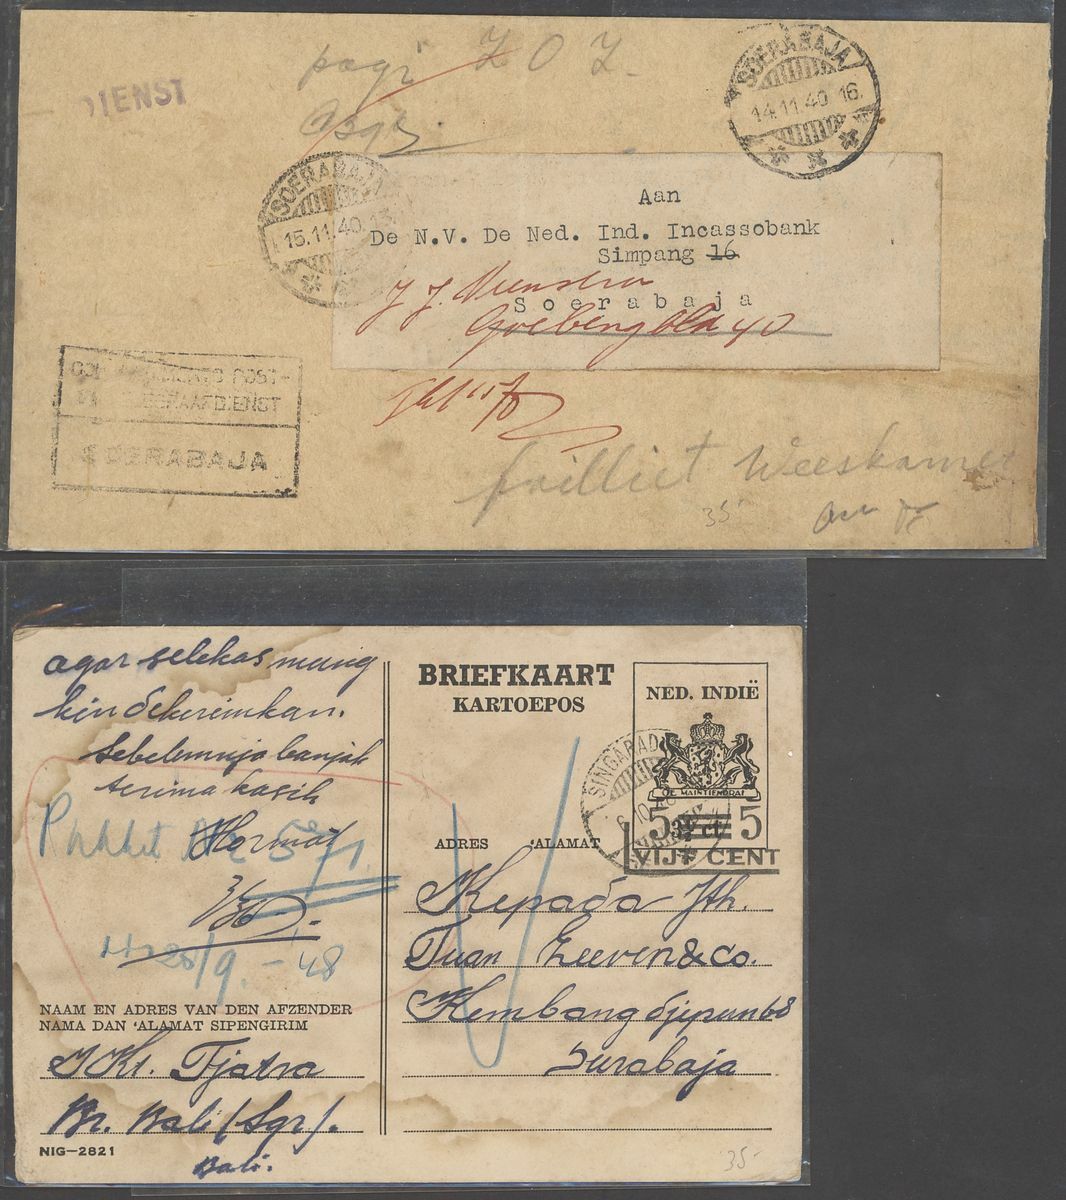 DIENST
pagi Z O Z
SOERABAJA
14.11.40.16
SOERABAJA
15.11.40.13
Aan
De N.V. De Ned. Ind. Incassobank
Simpang 16
Soerabaja
40
POST-
TELEGRAAFDIENST
SOERABAJA
failliet Weeskamer
35-
agar selekas mung
kin dikerimkan.
Sebelumnja banjak
terima kasih
Hormat
Pakket
28/9.-48
NAAM EN ADRES VAN DEN AFZENDER
NAMA DAN ‘ALAMAT SIPENGIRIM
I Kt. Tjatra
Br. Bali (Sgr).
Bali.
NIG—2821
BRIEFKAART
KARTOEPOS
NED. INDIË
JE MAINTIENDRAI
SINGARADJA
5 3½ ct 5
VIJF CENT
ADRES ‘ALAMAT
Kepada Jth.
Tuan Leeven & Co.
Kembang djepun 68
Surabaja
35-